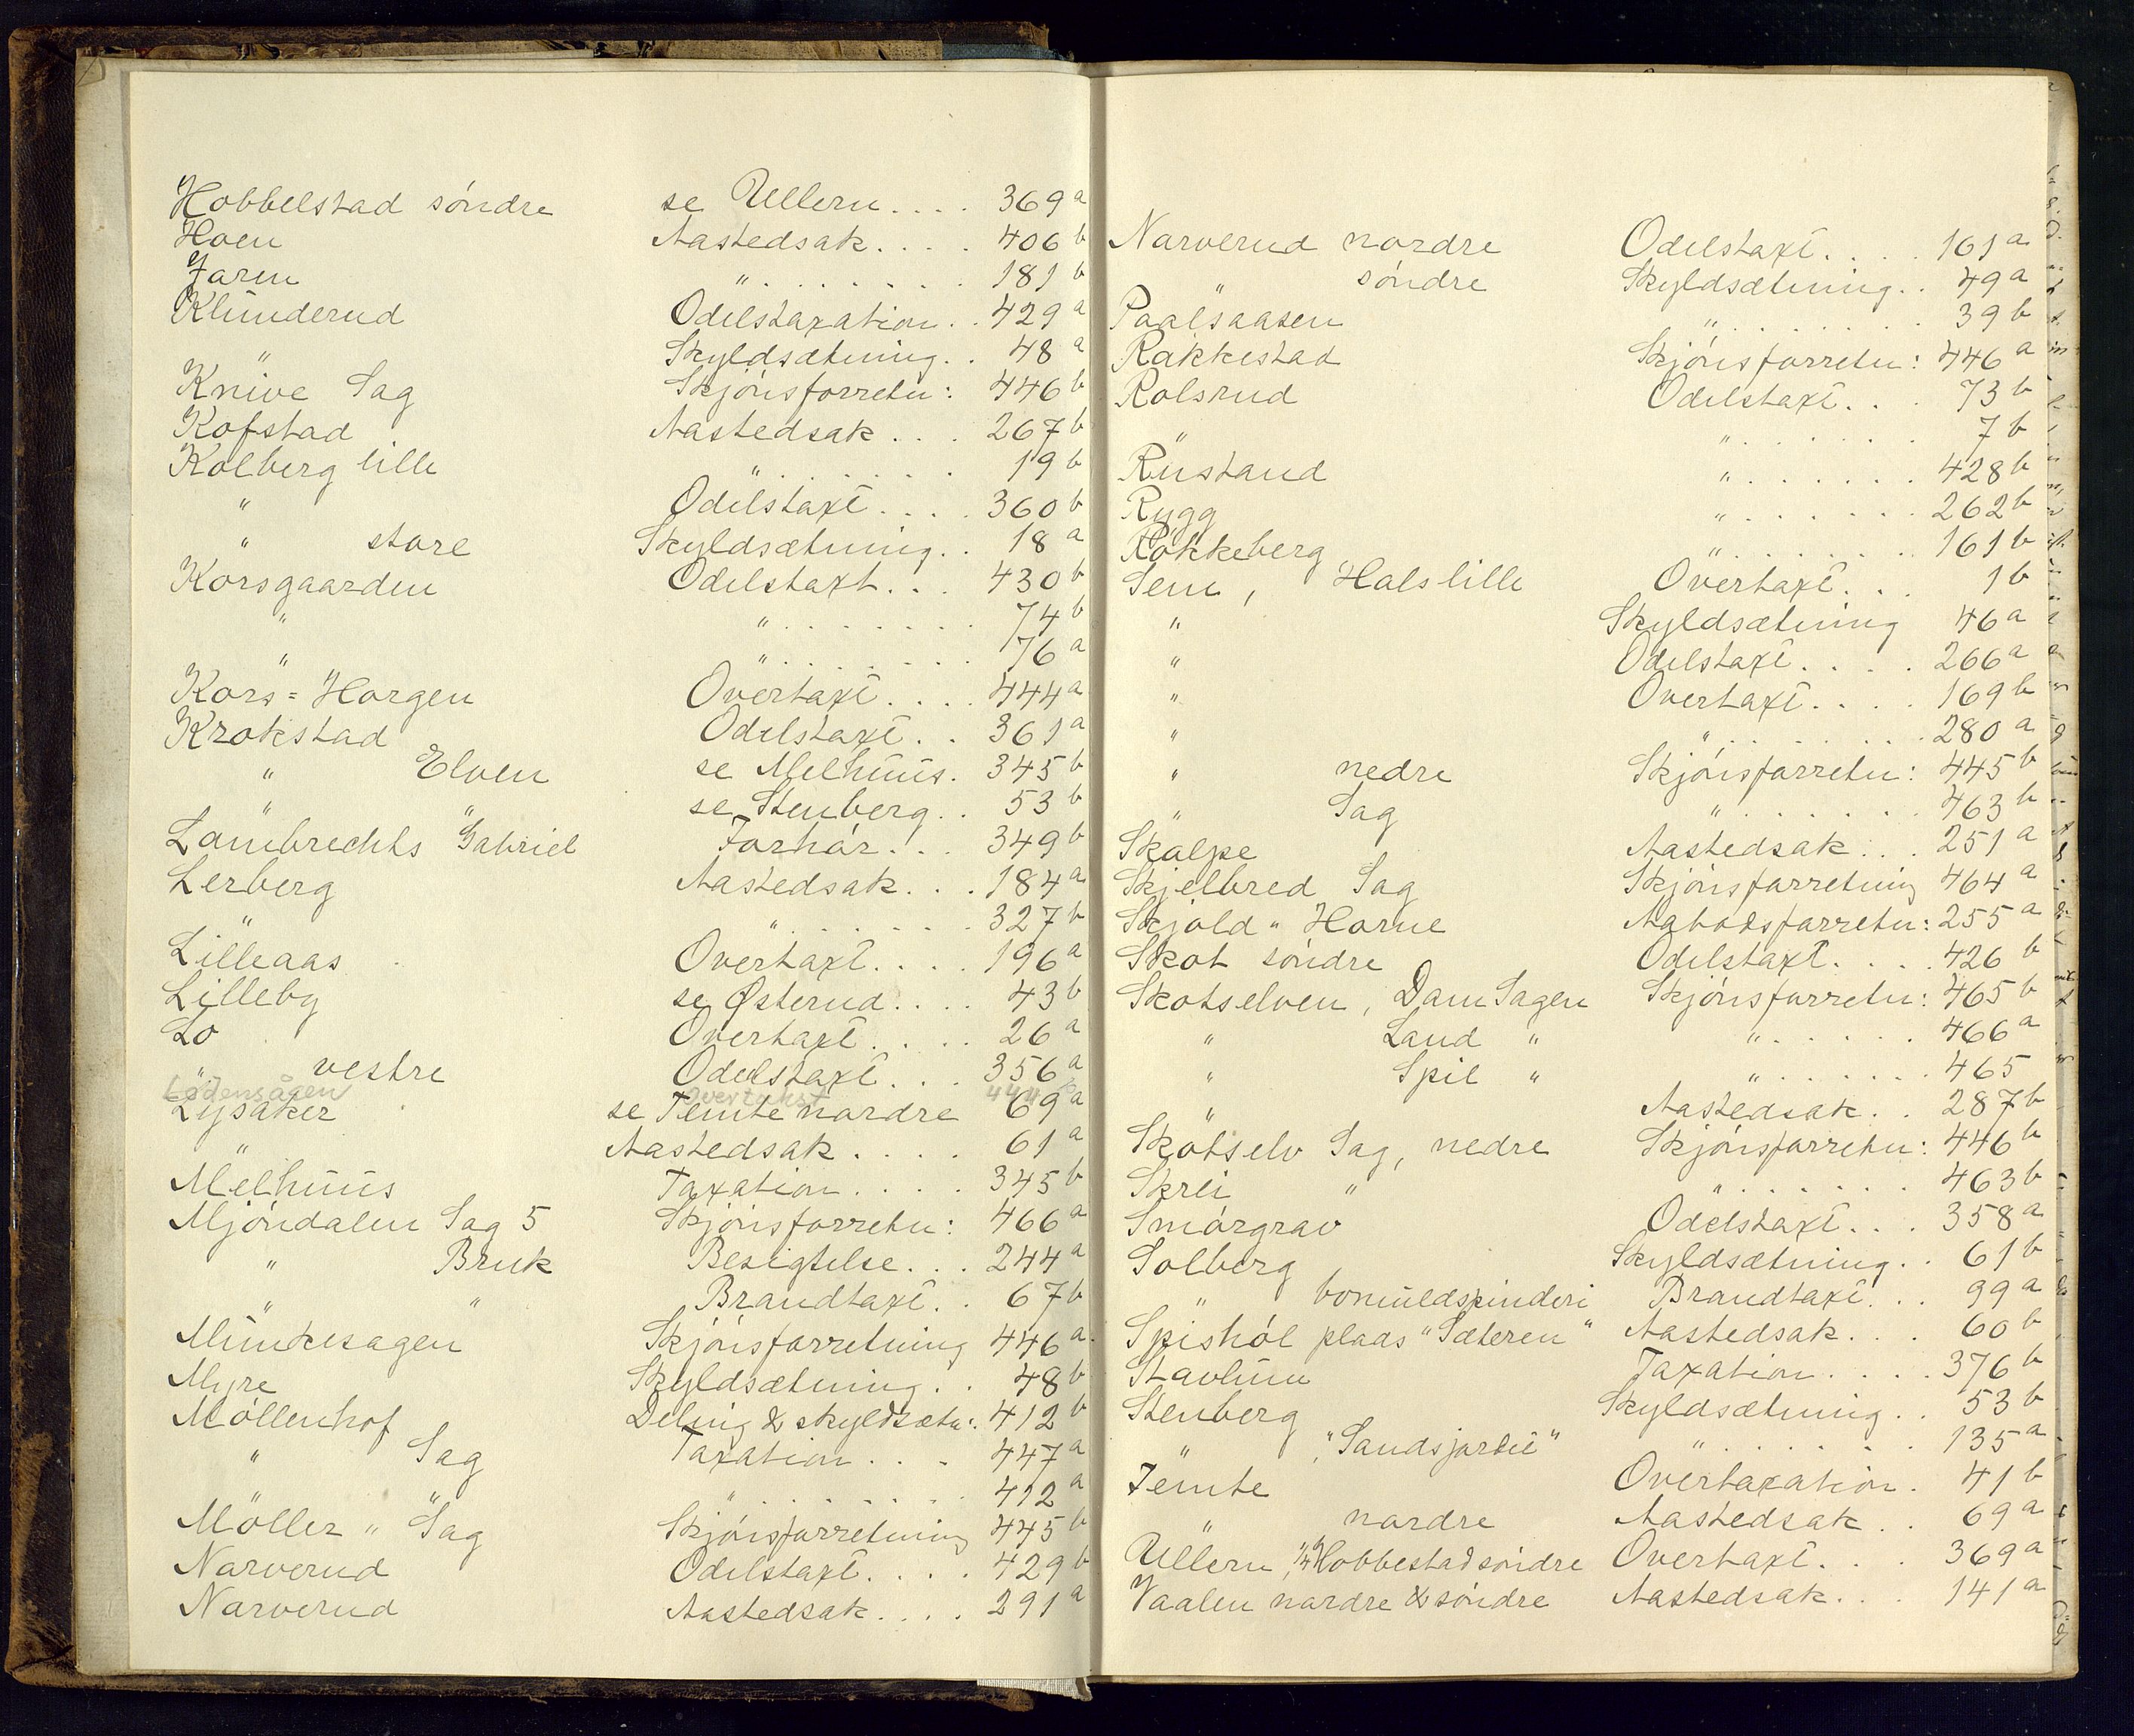 Hobbelstad söndre se Ullern.... 369 a
Hoen Aastedsak.... 406 b
Jaren " ........ 181 b
Klunderud Odelstaxation.. 429 a
" Skyldsætning.. 48 a
Knive Sag Skjönsforretn: 446 b
Kofstad Aastedsak.... 267 b
Kolberg lille " ........ 19 b
" Odelstaxt.... 360 b
" store Skyldsætning.. 18 a
Korsgaarden Odelstaxt... 430 b
" " ........ 74 b
" " ........ 76 a
Kors=Horgen Overtaxt.... 444 a
Krokstad Odelstaxt.. 361 a
" Elven se Melhuus. 345 b
" " se Stenberg.. 53 b
Lambrechts Gabriel Forhör... 349 b
Lerberg Aastedsak... 184 a
" " ....... 327 b
Lilleaas Overtaxt.... 196 a
Lilleby se Østerud.... 43 b
Lo Overtaxt.... 26 a
" vestre Odelstaxt... 356 a
Lødensågen Overtakst 444 b
Lysaker se Temte nordre 69 a
" Aastedsak.... 61 a
Melhuus Taxation.... 345 b
Mjöndalen Sag 5 Skjönsforretn: 466 a
" Bruk Besigtelse... 244 a
" " Brandtaxt.. 67 b
Munkesagen Skjönsforretning 446 a
Myre Skyldsætning.. 48 b
Möllenhof Deling & skyldsætn: 412 b
" Sag Taxation... 447 a
" " " ........ 412 a
Möller " Sag Skjönsforretning 445 b
Narverud Odelstaxt.... 429 b
Narverud Aastedsak.... 291 a
Narverud nordre Odelstaxt.... 161 a
" söndre Skyldsætning.. 49 a
Paalsaasen " ........ 39 b
Rakkestad Skjönsforretn: 446 a
Rolsrud Odelstaxt... 73 b
" " ....... 7 b
Rustand " ...... 428 b
Rygg " ....... 262 b
Rökkeberg " ....... 161 b
Sem, Hals lille Overtaxt... 1 b
" Skyldsætning 46 a
" Odelstaxt.... 266 a
" Overtaxt.... 169 b
" " ........ 280 a
" nedre Skjönsforretn: 445 b
" Sag " ....... 463 b
Skalpe Aastedsak... 251 a
Skjelbred Sag Skjönsforretning 464 a
Skjold " Horne Aabodsforretn: 255 a
Skot söndre Odelstaxt.... 426 b
Skotselven, Dam Sagen Skjönsforretn: 465 b
" Land " " ...... 466 a
" Spil " " ....... 465
" Aastedsak.. 287 b
Skotselv Sag, nedre Skjönsforretn: 446 b
Skrei " " ....... 463 b
Smörgrav Odelstaxt... 358 a
Solberg Skyldsætning.. 61 b
" bomuldspinderi Brandtaxt... 99 a
Spishöl plads "Sæteren" Aastedsak... 60 b
Stavlum Taxation.... 376 b
Stenberg Skyldsætning.. 53 b
" , "Sandsjordet" " ....... 135 a
Temte Overtaxation. 41 b
" nordre Aastedsak.. 69 a
Ullern, 1/4 Hobbestad söndre Overtaxt... 369 a
Vaalen nordre & söndre Aastedsak... 141 a